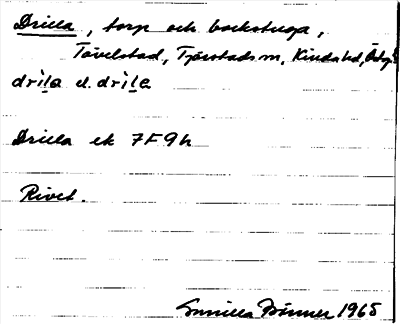 Drilla, torp och backstuga,
Tåvelstad, Tjärstads sn, Kinda hd, Östg.
drìla el. drìla
Drilla ek 7F9h
Rivet.
Gunilla 1965